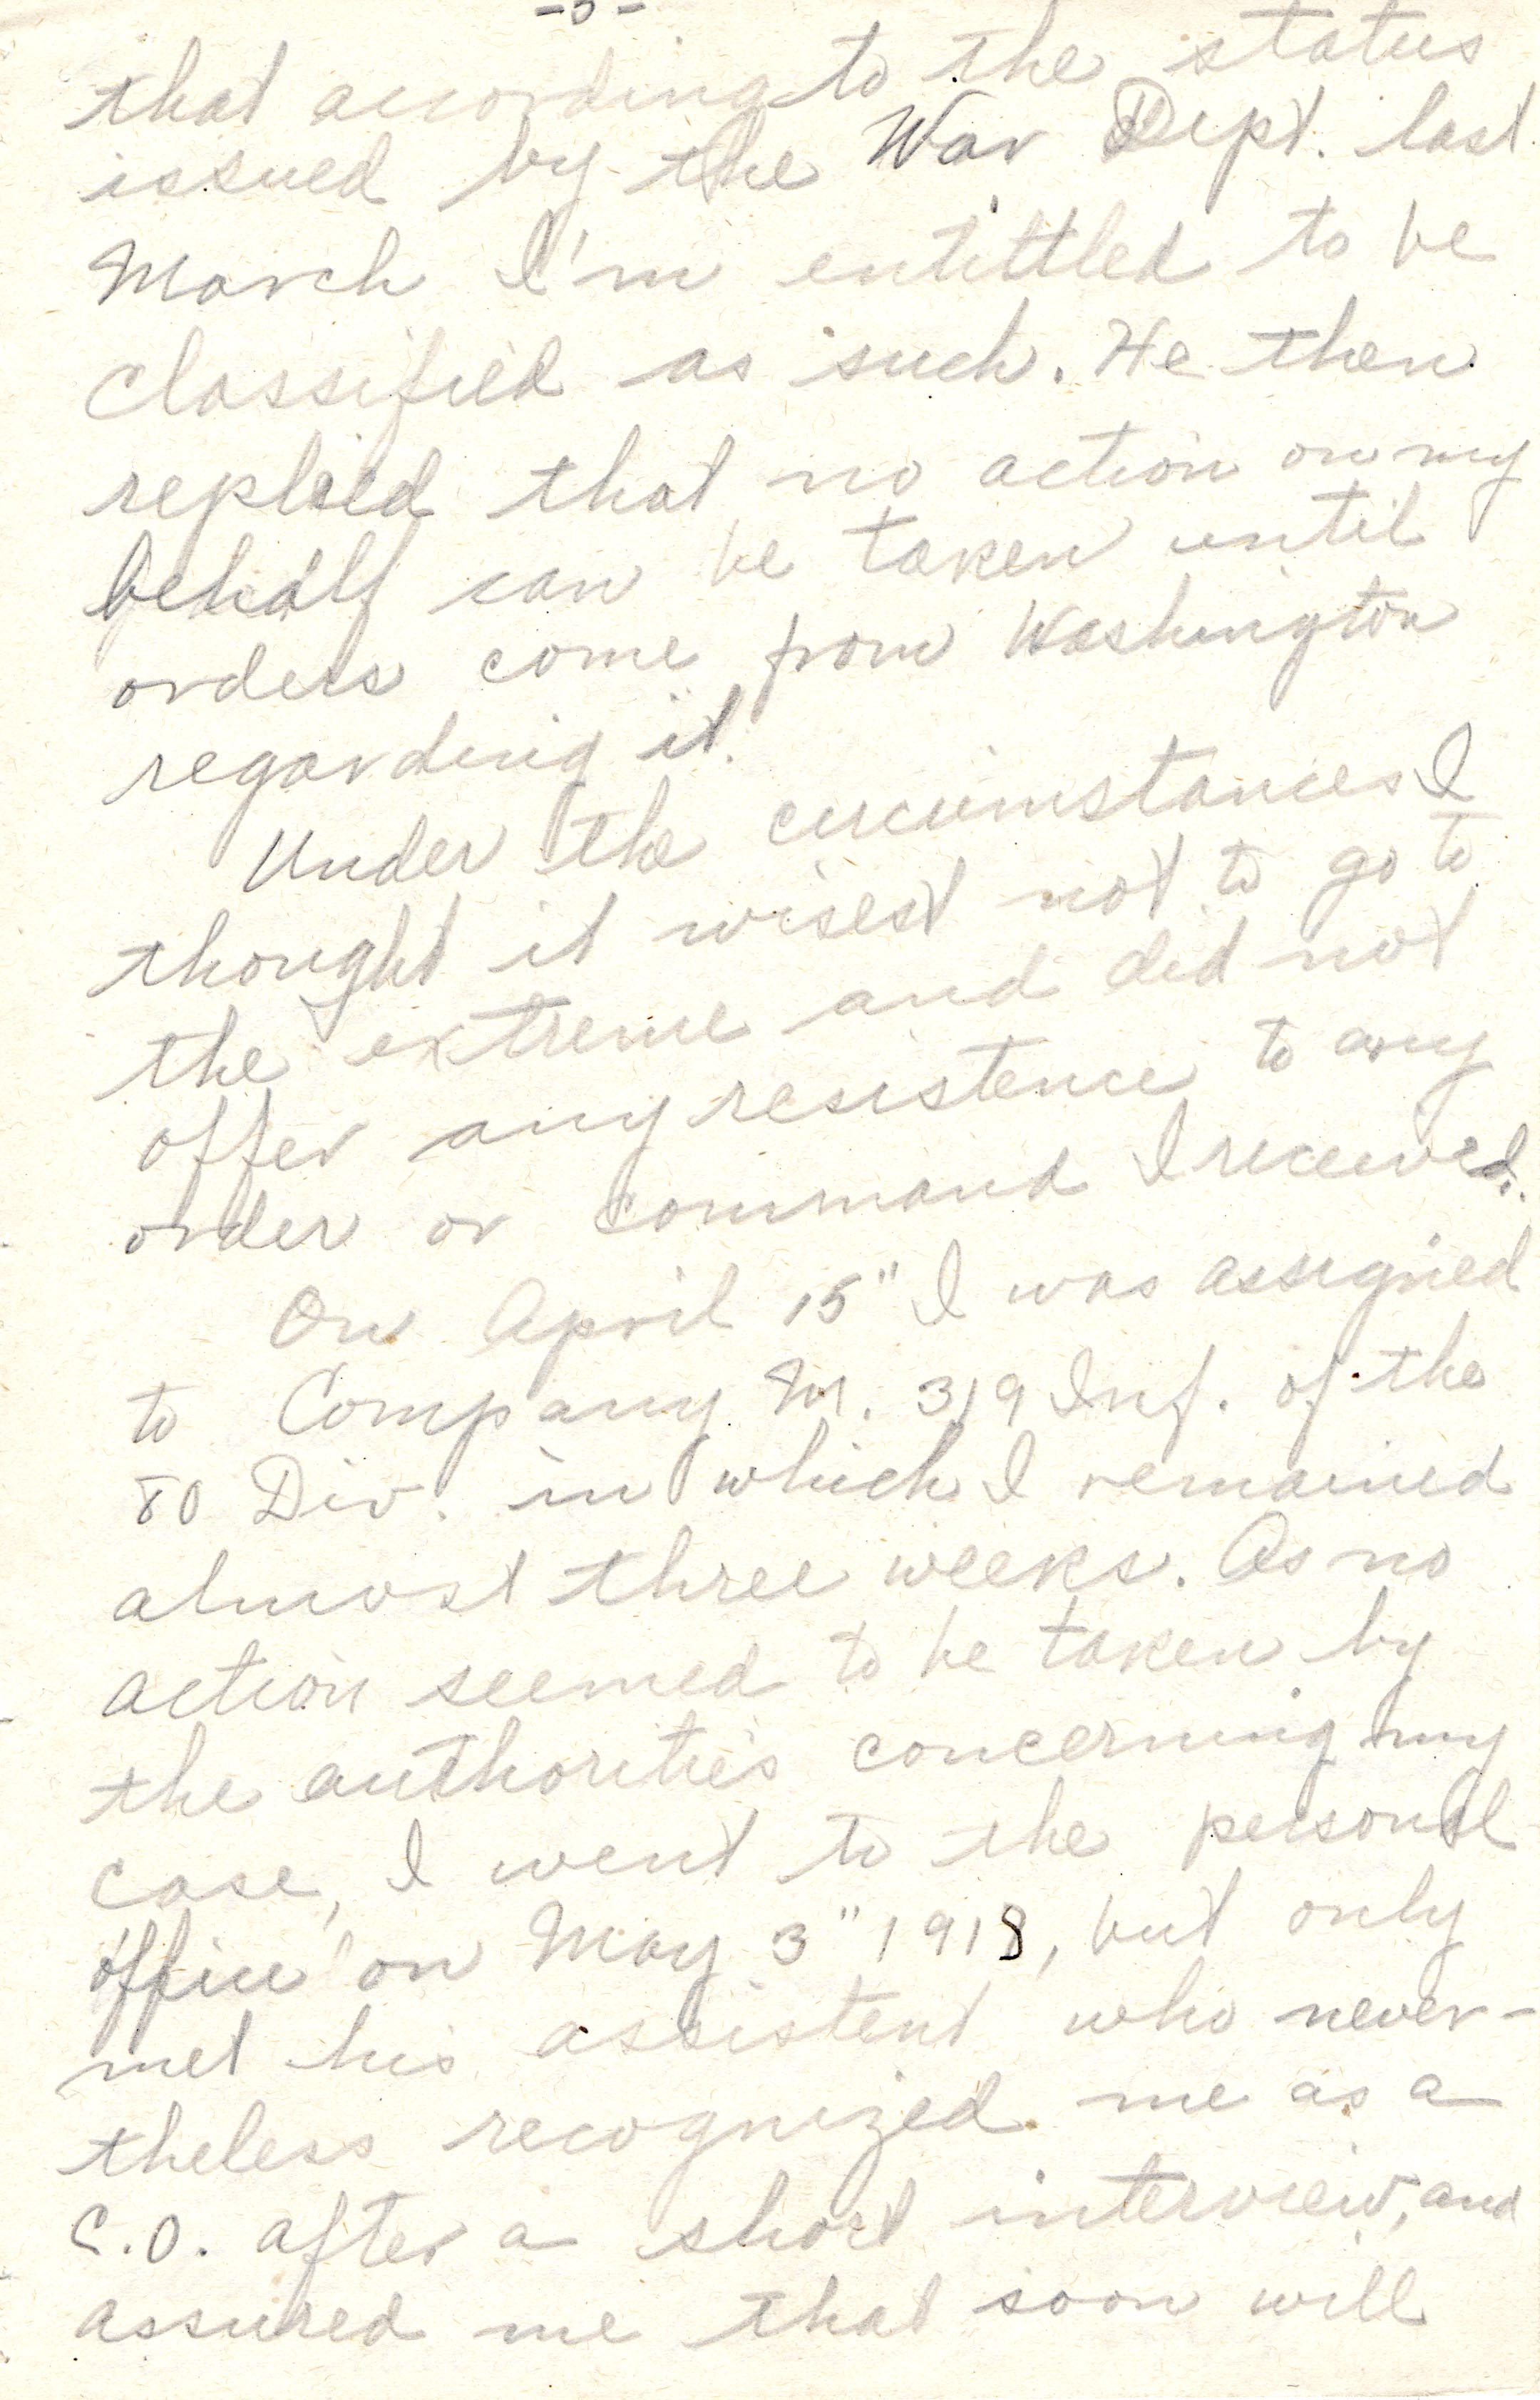 that according to the status
issued by the War Dept. last
March I'm entittled to be
classified as such. He then
replied that no action on my
behalf can be taken until
orders come from Washington
regarding it.
Under the circumstances I
thought it wisest not to go to
the extreme and did not
offer any resistence to any
order or command I received.
On April 15" I was assigned
to Company M. 319 Inf. of the
80 Div. in which I remained
almost three weeks. As no
action seemed to be taken by
the authorities concerning my
case, I went to the personal
office on May 3" 1918, but only
met his assistent who never-
theless recognized me as a
C.O. after a short interview, and
assured me that soon will